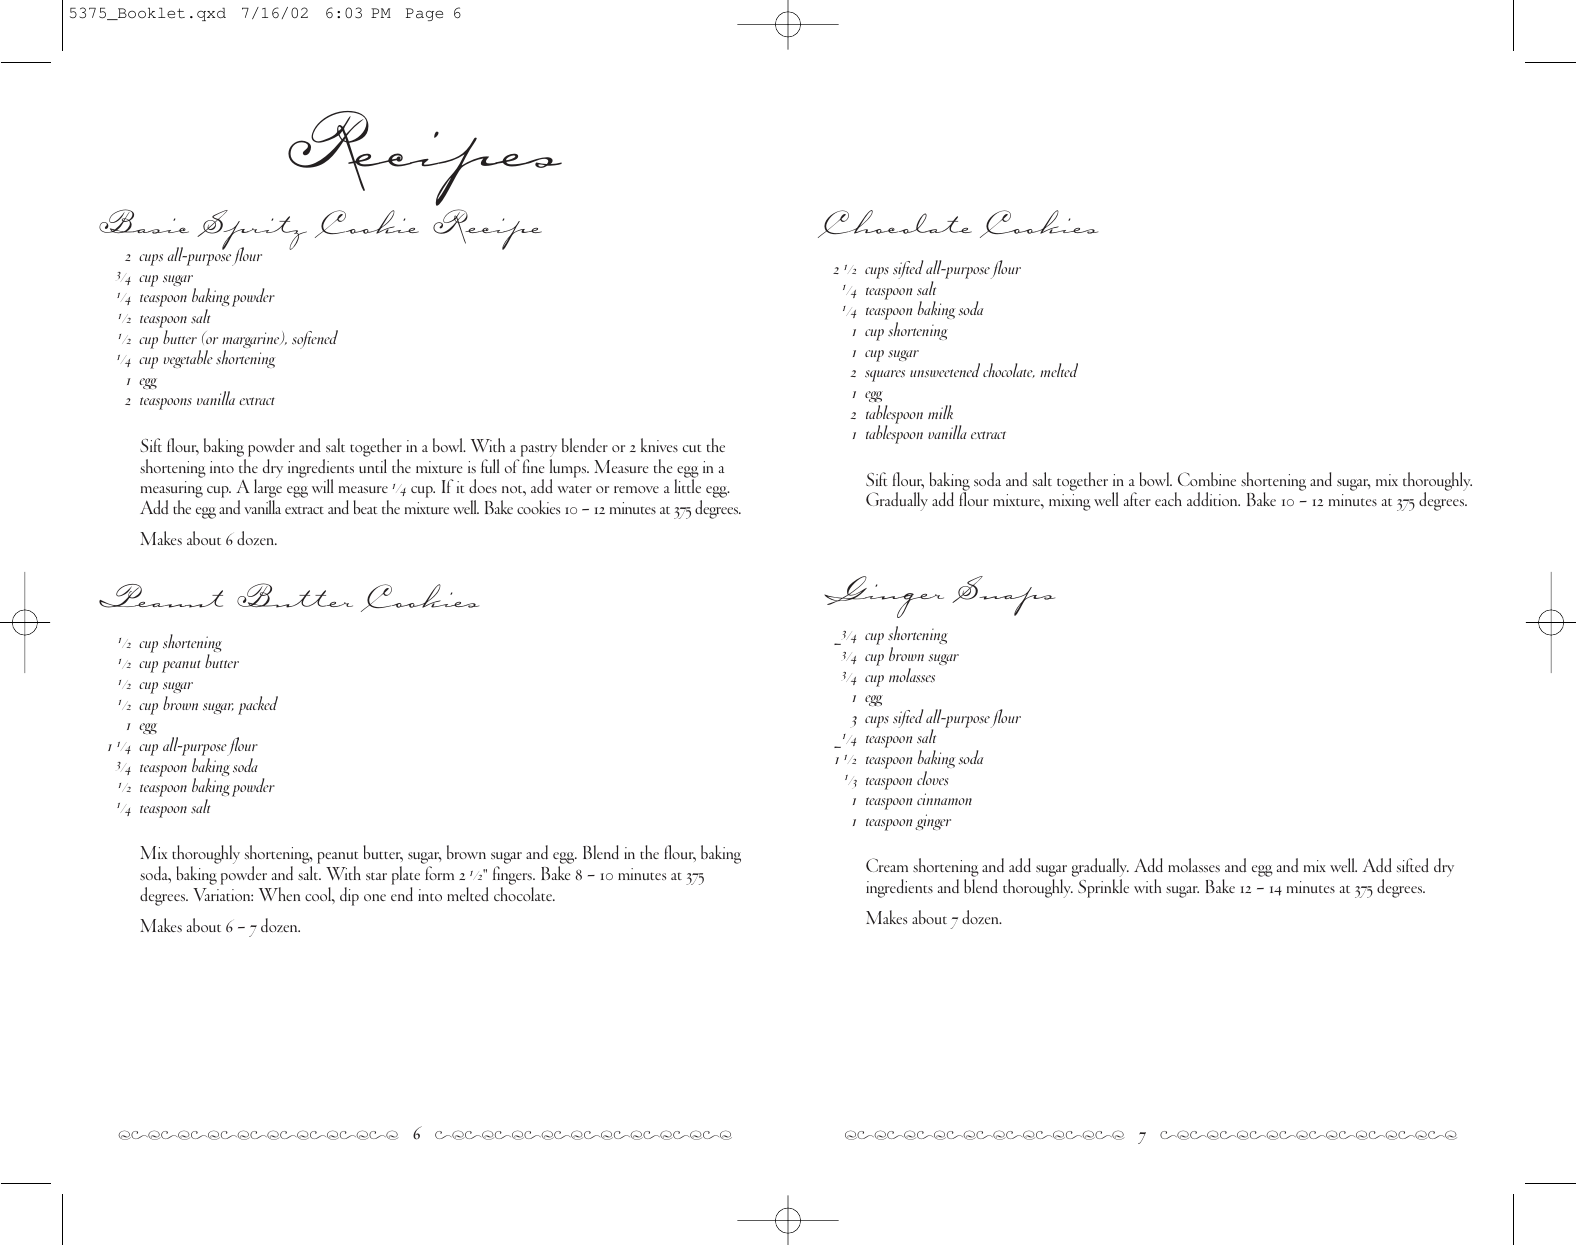 5375_Booklet.qxd 7/16/02 6:03 PM Page 6
Recipes
Basic Spritz Cookie Recipe
2 cups all-purpose flour
3/4 cup sugar
1/4 teaspoon baking powder
1/2 teaspoon salt
1/2 cup butter (or margarine), softened
1/4 cup vegetable shortening
1 egg
2 teaspoons vanilla extract
Sift flour, baking powder and salt together in a bowl. With a pastry blender or 2 knives cut the
shortening into the dry ingredients until the mixture is full of fine lumps. Measure the egg in a
measuring cup. A large egg will measure 1/4 cup. If it does not, add water or remove a little egg.
Add the egg and vanilla extract and beat the mixture well. Bake cookies 10 – 12 minutes at 375 degrees.
Makes about 6 dozen.
Peanut Butter Cookies
1/2 cup shortening
1/2 cup peanut butter
1/2 cup sugar
1/2 cup brown sugar, packed
1 egg
1 1/4 cup all-purpose flour
3/4 teaspoon baking soda
1/2 teaspoon baking powder
1/4 teaspoon salt
Mix thoroughly shortening, peanut butter, sugar, brown sugar and egg. Blend in the flour, baking
soda, baking powder and salt. With star plate form 2 1/2" fingers. Bake 8 – 10 minutes at 375
degrees. Variation: When cool, dip one end into melted chocolate.
Makes about 6 – 7 dozen.
6
Chocolate Cookies
2 1/2 cups sifted all-purpose flour
1/4 teaspoon salt
1/4 teaspoon baking soda
1 cup shortening
1 cup sugar
2 squares unsweetened chocolate, melted
1 egg
2 tablespoon milk
1 tablespoon vanilla extract
Sift flour, baking soda and salt together in a bowl. Combine shortening and sugar, mix thoroughly.
Gradually add flour mixture, mixing well after each addition. Bake 10 – 12 minutes at 375 degrees.
Ginger Snaps
_3/4 cup shortening
3/4 cup brown sugar
3/4 cup molasses
1 egg
3 cups sifted all-purpose flour
_1/4 teaspoon salt
1 1/2 teaspoon baking soda
1/3 teaspoon cloves
1 teaspoon cinnamon
1 teaspoon ginger
Cream shortening and add sugar gradually. Add molasses and egg and mix well. Add sifted dry
ingredients and blend thoroughly. Sprinkle with sugar. Bake 12 – 14 minutes at 375 degrees.
Makes about 7 dozen.
7